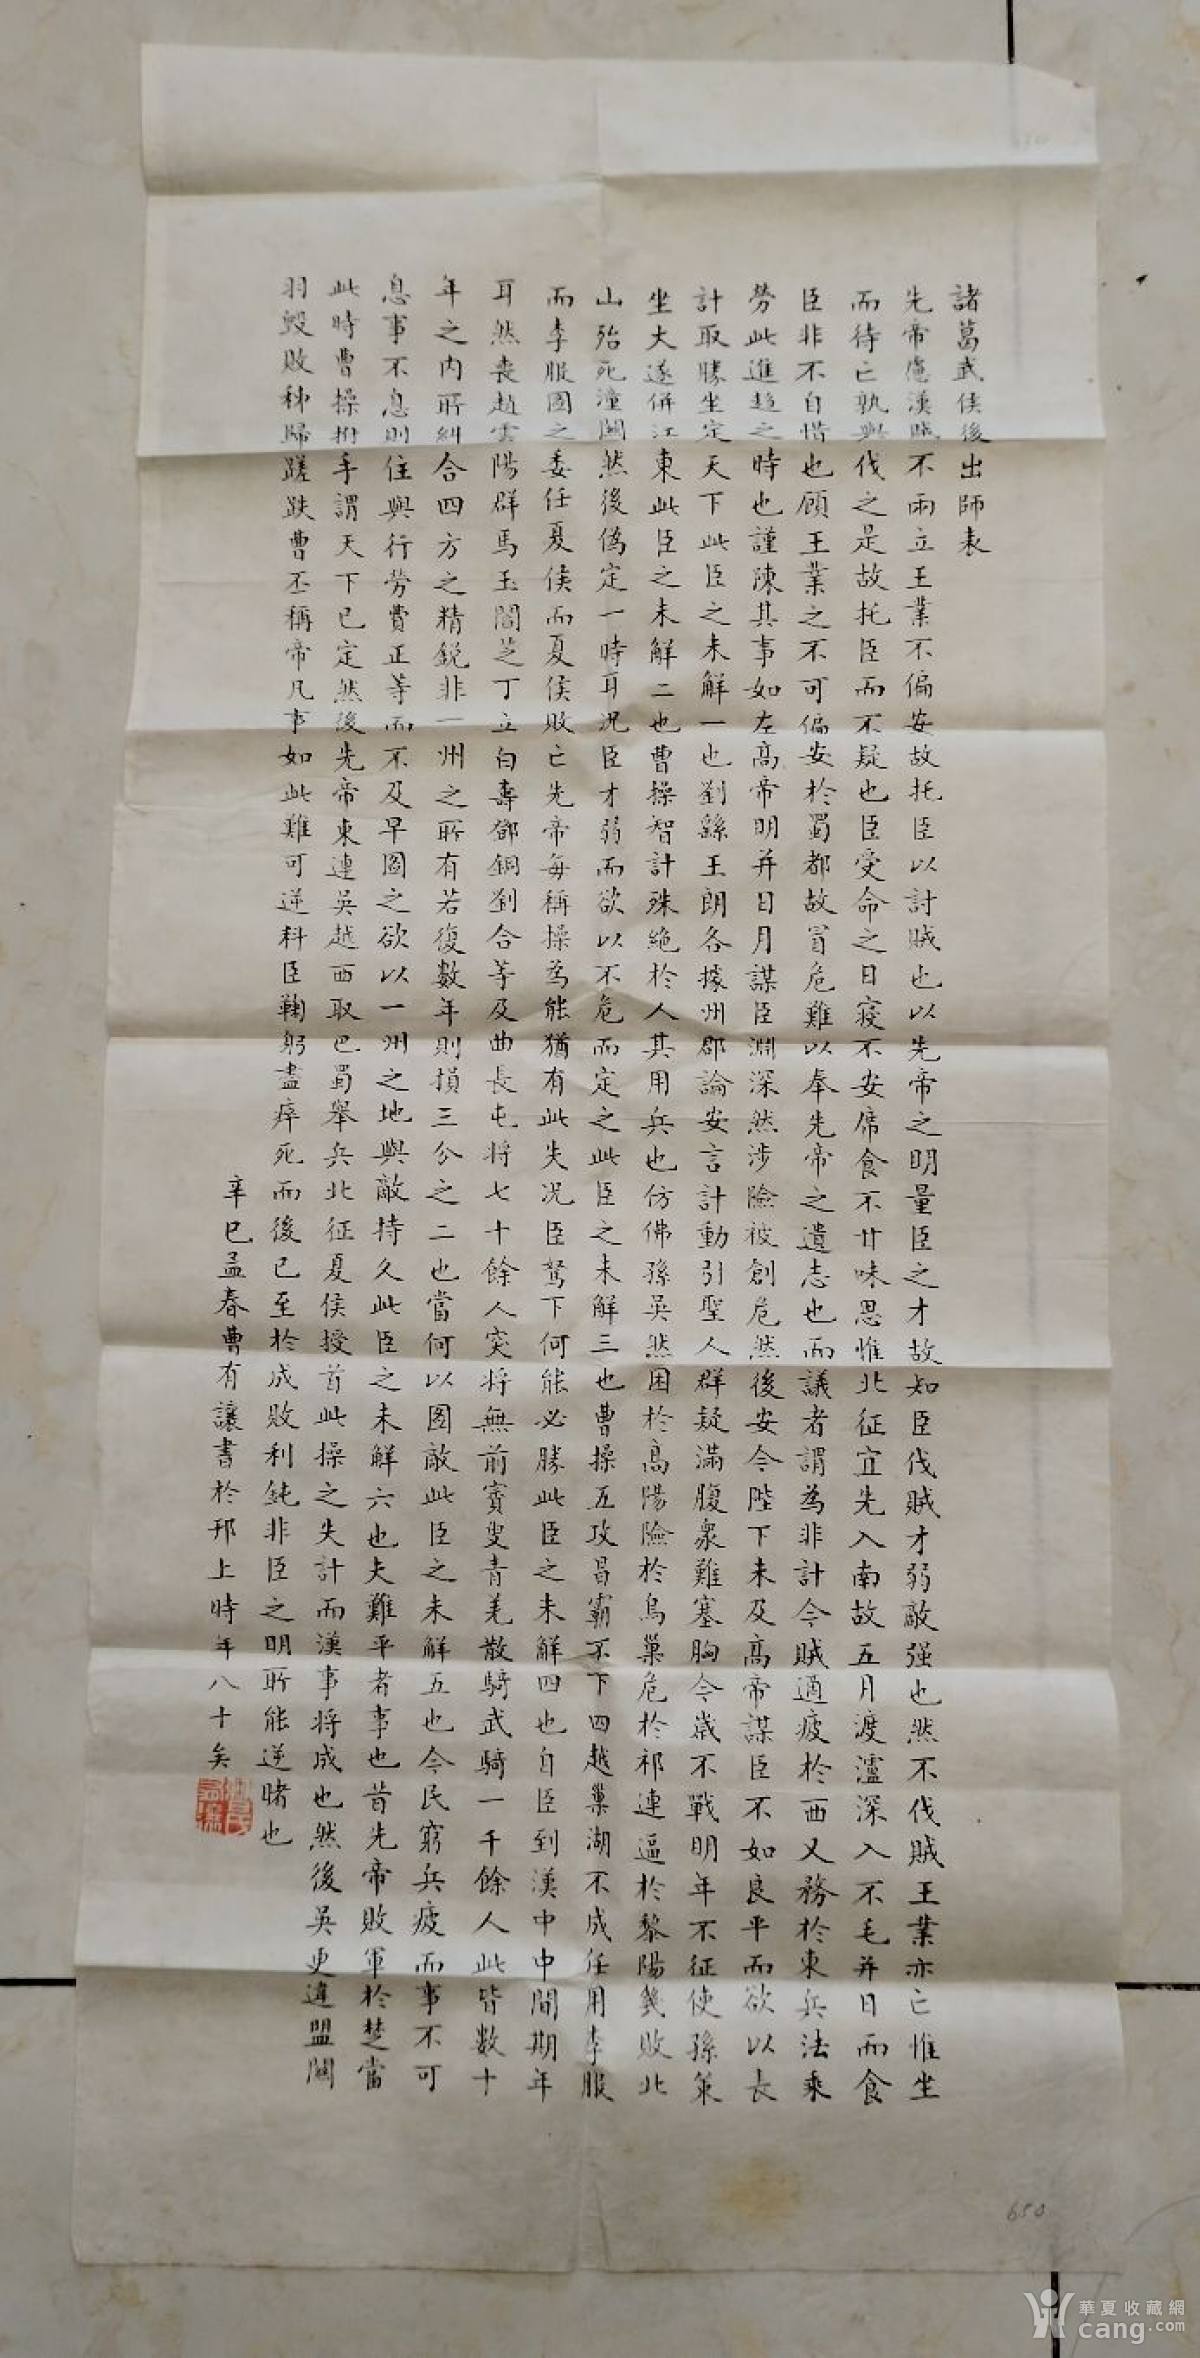 諸葛武侯後出師表
先帝慮漢賊不兩立王業不偏安故托臣以討賊也以先帝之明量臣之才故知臣伐賊才弱敵强也然不伐賊王業亦亡惟坐
而待亡孰與伐之是故托臣而不疑也臣受命之日寢不安席食不甘味思惟北征宜先入南故五月渡瀘深入不毛并日而食
臣非不自惜也顧王業之不可偏安於蜀都故冒危難以奉先帝之遺志也而議者謂為非計今賊適疲於西又務於東兵法乘
勞此進趨之時也謹陳其事如左高帝明并日月謀臣淵深然涉險被創危然後安今陛下未及高帝謀臣不如良平而欲以長
計取勝坐定天下此臣之未解一也劉繇王朗各據州郡論安言計動引聖人群疑滿腹衆難塞胸今歲不戰明年不征使孫策
坐大遂併江東此臣之未解二也曹操智計殊絶於人其用兵也仿佛孫吳然困於高陽險於烏巢危於祁連逼於黎陽幾敗北
山殆死潼關然後偽定一時耳况臣才弱而欲以不危而定之此臣之未解三也曹操五攻昌霸不下四越巢湖不成任用李服
而李服圖之委任夏侯而夏侯敗亡先帝每稱操為能猶有此失况臣駑下何能必勝此臣之未解四也自臣到漢中中間期年
耳然喪趙雲陽群馬玉閻芝丁立白壽鄧銅劉合等及曲長屯将七十餘人突将無前賨叟青羌散騎武騎一千餘人此皆數十
年之内所糾合四方之精鋭非一州之所有若復數年則損三分之二也當何以圖敵此臣之未解五也今民窮兵疲而事不可
息事不息則住與行勞費正等而不及早圖之欲以一州之地與敵持久此臣之未解六也夫難平者事也昔先帝敗軍於楚當
此時曹操拊手謂天下已定然後先帝東連吳越西取巴蜀舉兵北征夏侯授首此操之失計而漢事将成也然後吳更違盟關
羽毁敗秭歸蹉跌曹丕稱帝凡事如此難可逆料臣鞠躬盡瘁死而後已至於成敗利鈍非臣之明所能逆睹也
辛巳孟春曹有讓書於邗上時年八十矣
650
華夏收藏網
cang.com